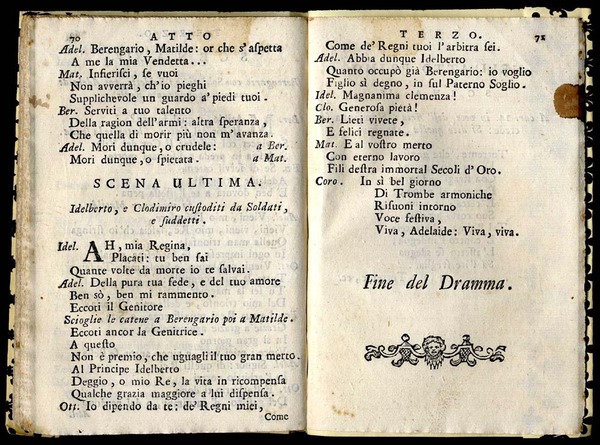 70 ATTO
Adel. Berengario, Matilde: or che s'aspetta
A me la mia Vendetta...
Mat. Infierisci, se vuoi
Non avverrà, ch'io pieghi
Supplichevole un guardo a' piedi tuoi.
Ber. Serviti a tuo talento
Della ragion dell'armi: altra speranza,
Che quella di morir più non m'avanza.
Adel. Mori dunque, o crudele: a Ber.
Mori dunque, o spietata. a Mat.
SCENA ULTIMA.
Idelberto, e Clodimiro custoditi da Soldati,
e suddetti.
Idel. AH, mia Regina,
Placati: tu ben sai
Quante volte da morte io te salvai.
Adel. Della pura tua fede, e del tuo amore
Ben sò, ben mi rammento.
Eccoti il Genitore
Scioglie le catene a Berengario poi a Matilde.
Eccoti ancor la Genitrice.
A questo
Non è premio, che uguagli il tuo gran merto.
Al Principe Idelberto
Deggio, o mio Re, la vita in ricompensa
Qualche grazia maggiore a lui dispensa.
Ott. Io dipendo da te: de' Regni miei,
Come
TERZO. 71
Come de' Regni tuoi l'arbitra sei.
Adel. Abbia dunque Idelberto
Quanto occupò già Berengario: io voglio
Figlio sì degno, in sul Paterno Soglio.
Idel. Magnanima clemenza!
Clo. Generosa pietà!
Ber. Lieti vivete,
E felici regnate.
Mat. E al vostro merto
Con eterno lavoro
Fili destra immortal Secoli d'Oro.
Coro. In sì bel giorno
Di Trombe armoniche
Risuoni intorno
Voce festiva,
Viva, Adelaide: Viva, viva.
Fine del Dramma.